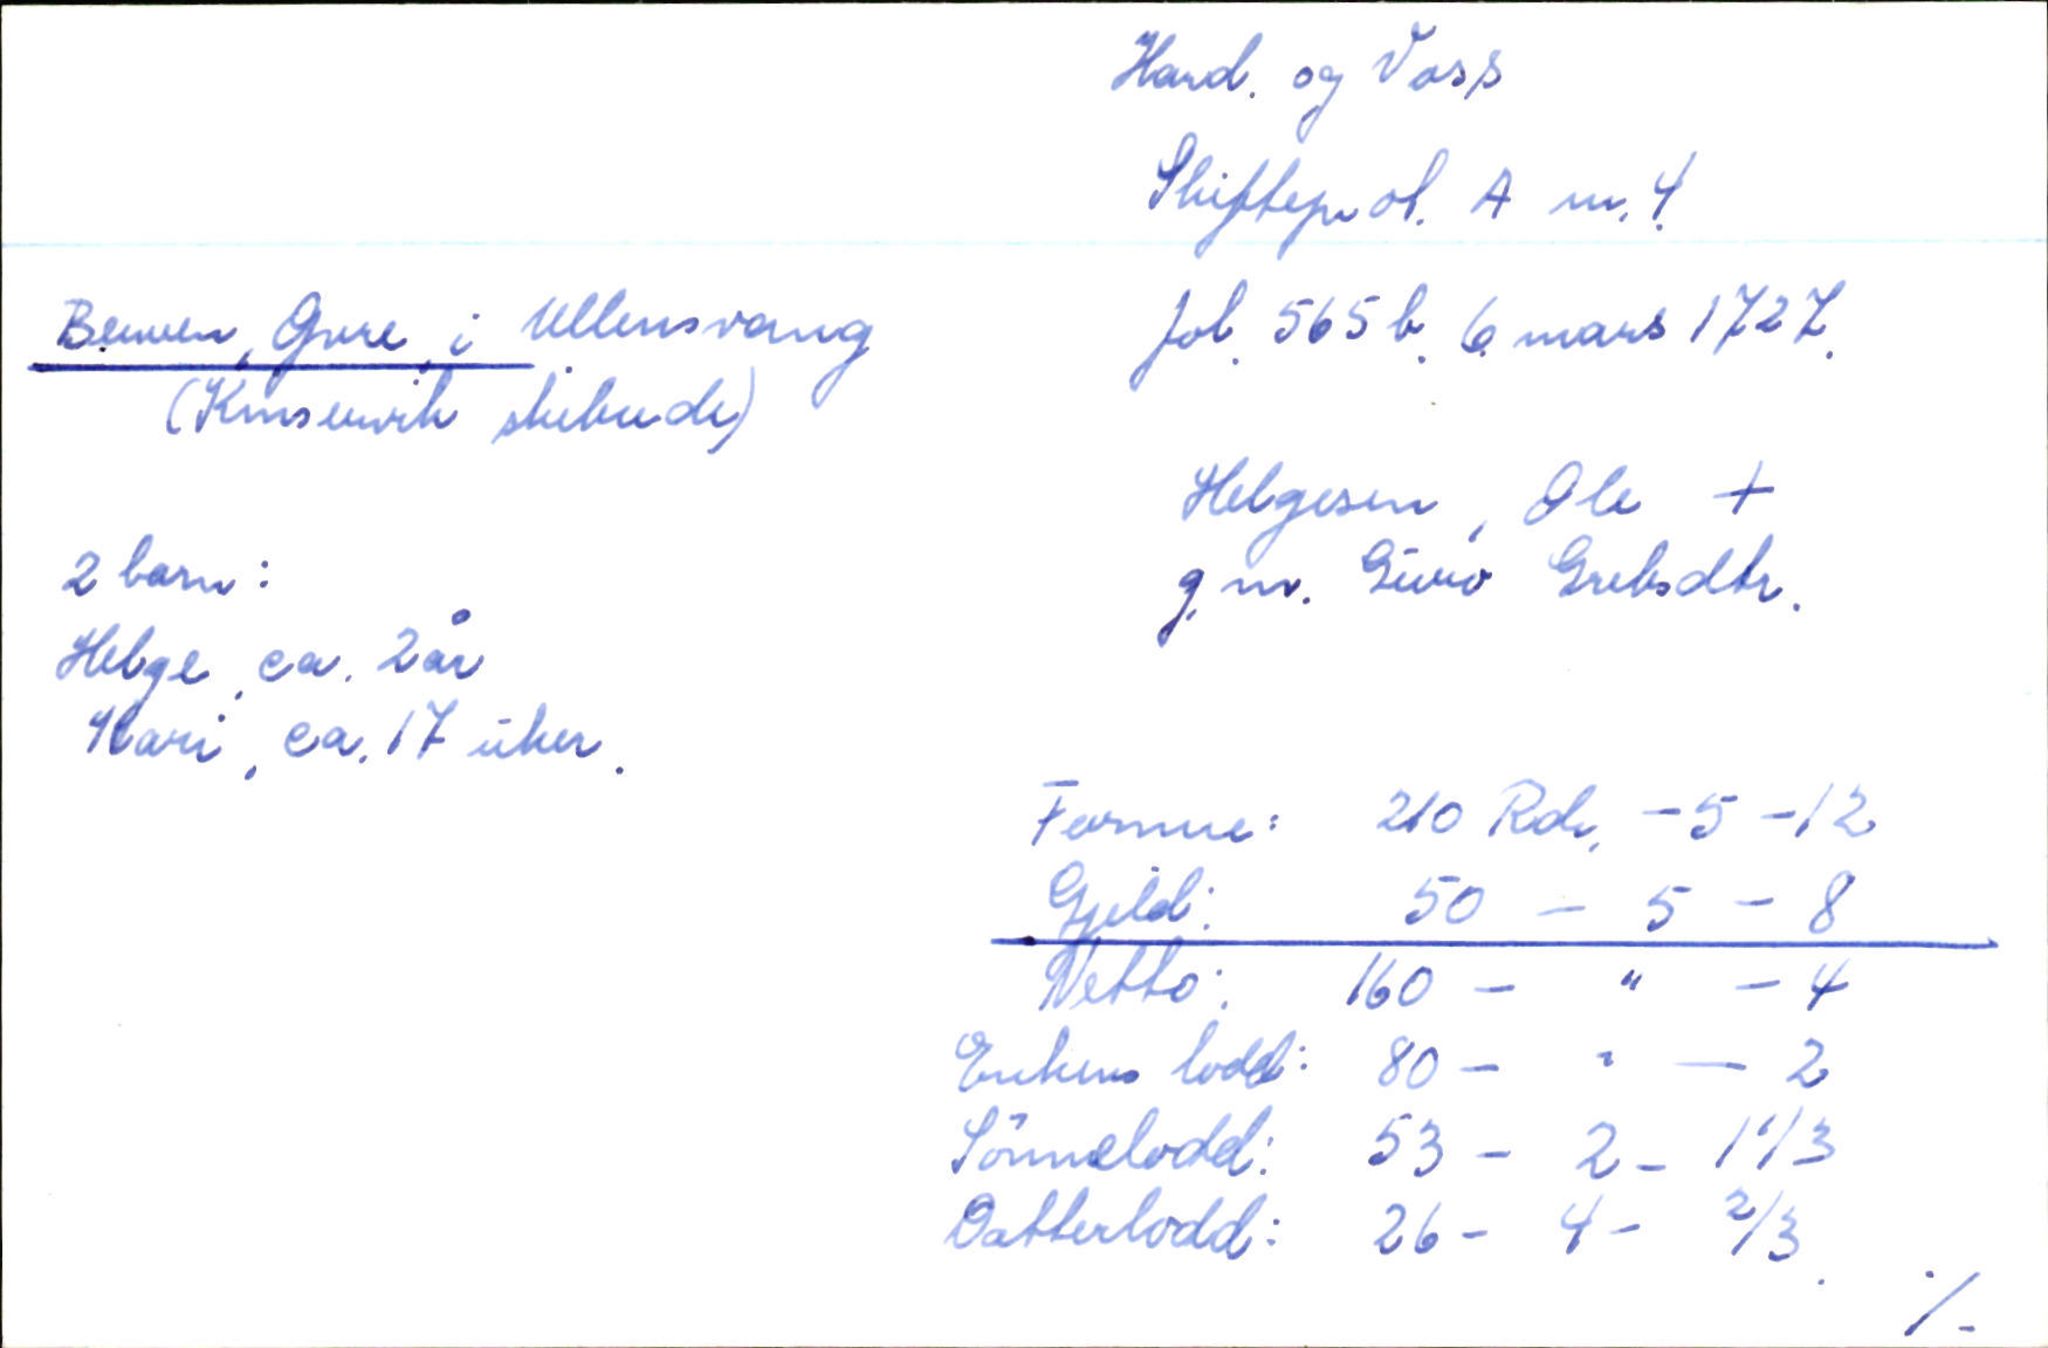 Hard. og Voss
Skifteprot. A nr. 4
fol. 565 b. 6 mars 1727.
Berven, Øvre, i Ullensvang
(Kinservik skibrede)
Helgesen, Ole +
g. m. Guro Greksdtr.
2 barn:
Helge, ca. 2 år
Kari, ca. 17 uker.
Formue: 210 Rdr. - 5 - 12
Gjeld: 50 - 5 - 8
Netto: 160 - " - 4
Enkens lodd: 80 - " - 2
Sönnelodd: 53 - 2 - 1 1/3
Datterlodd: 26 - 4 - 2/3.
./-